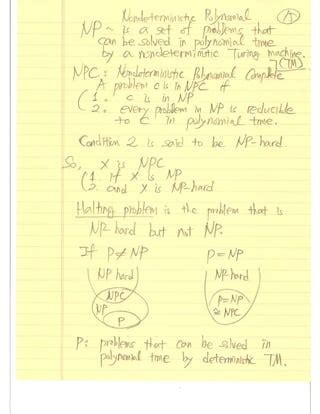 Nondeterministic Polynomial
A
NP ~ is a set of problems that
can be solved in polynomial time
by a nondeterministic Turing machine.
(TM)
NPC: Nondeterministic Polynomial Complete
A problem c is in NPC if
1. c is in NP
2. every problem in NP is reducible
to c in polynomial time.
Condition 2 is said to be NP-hard.
So, X is NPC
1. if X is NP
2. and X is NP-hard
Halting problem is the problem that is
NP-hard but not NP.
If P≠NP P=NP
NP hard NP-hard
NPC P=NP
NP ≅ NPC
P
P: problems that can be solved in
polynomial time by deterministic TM.